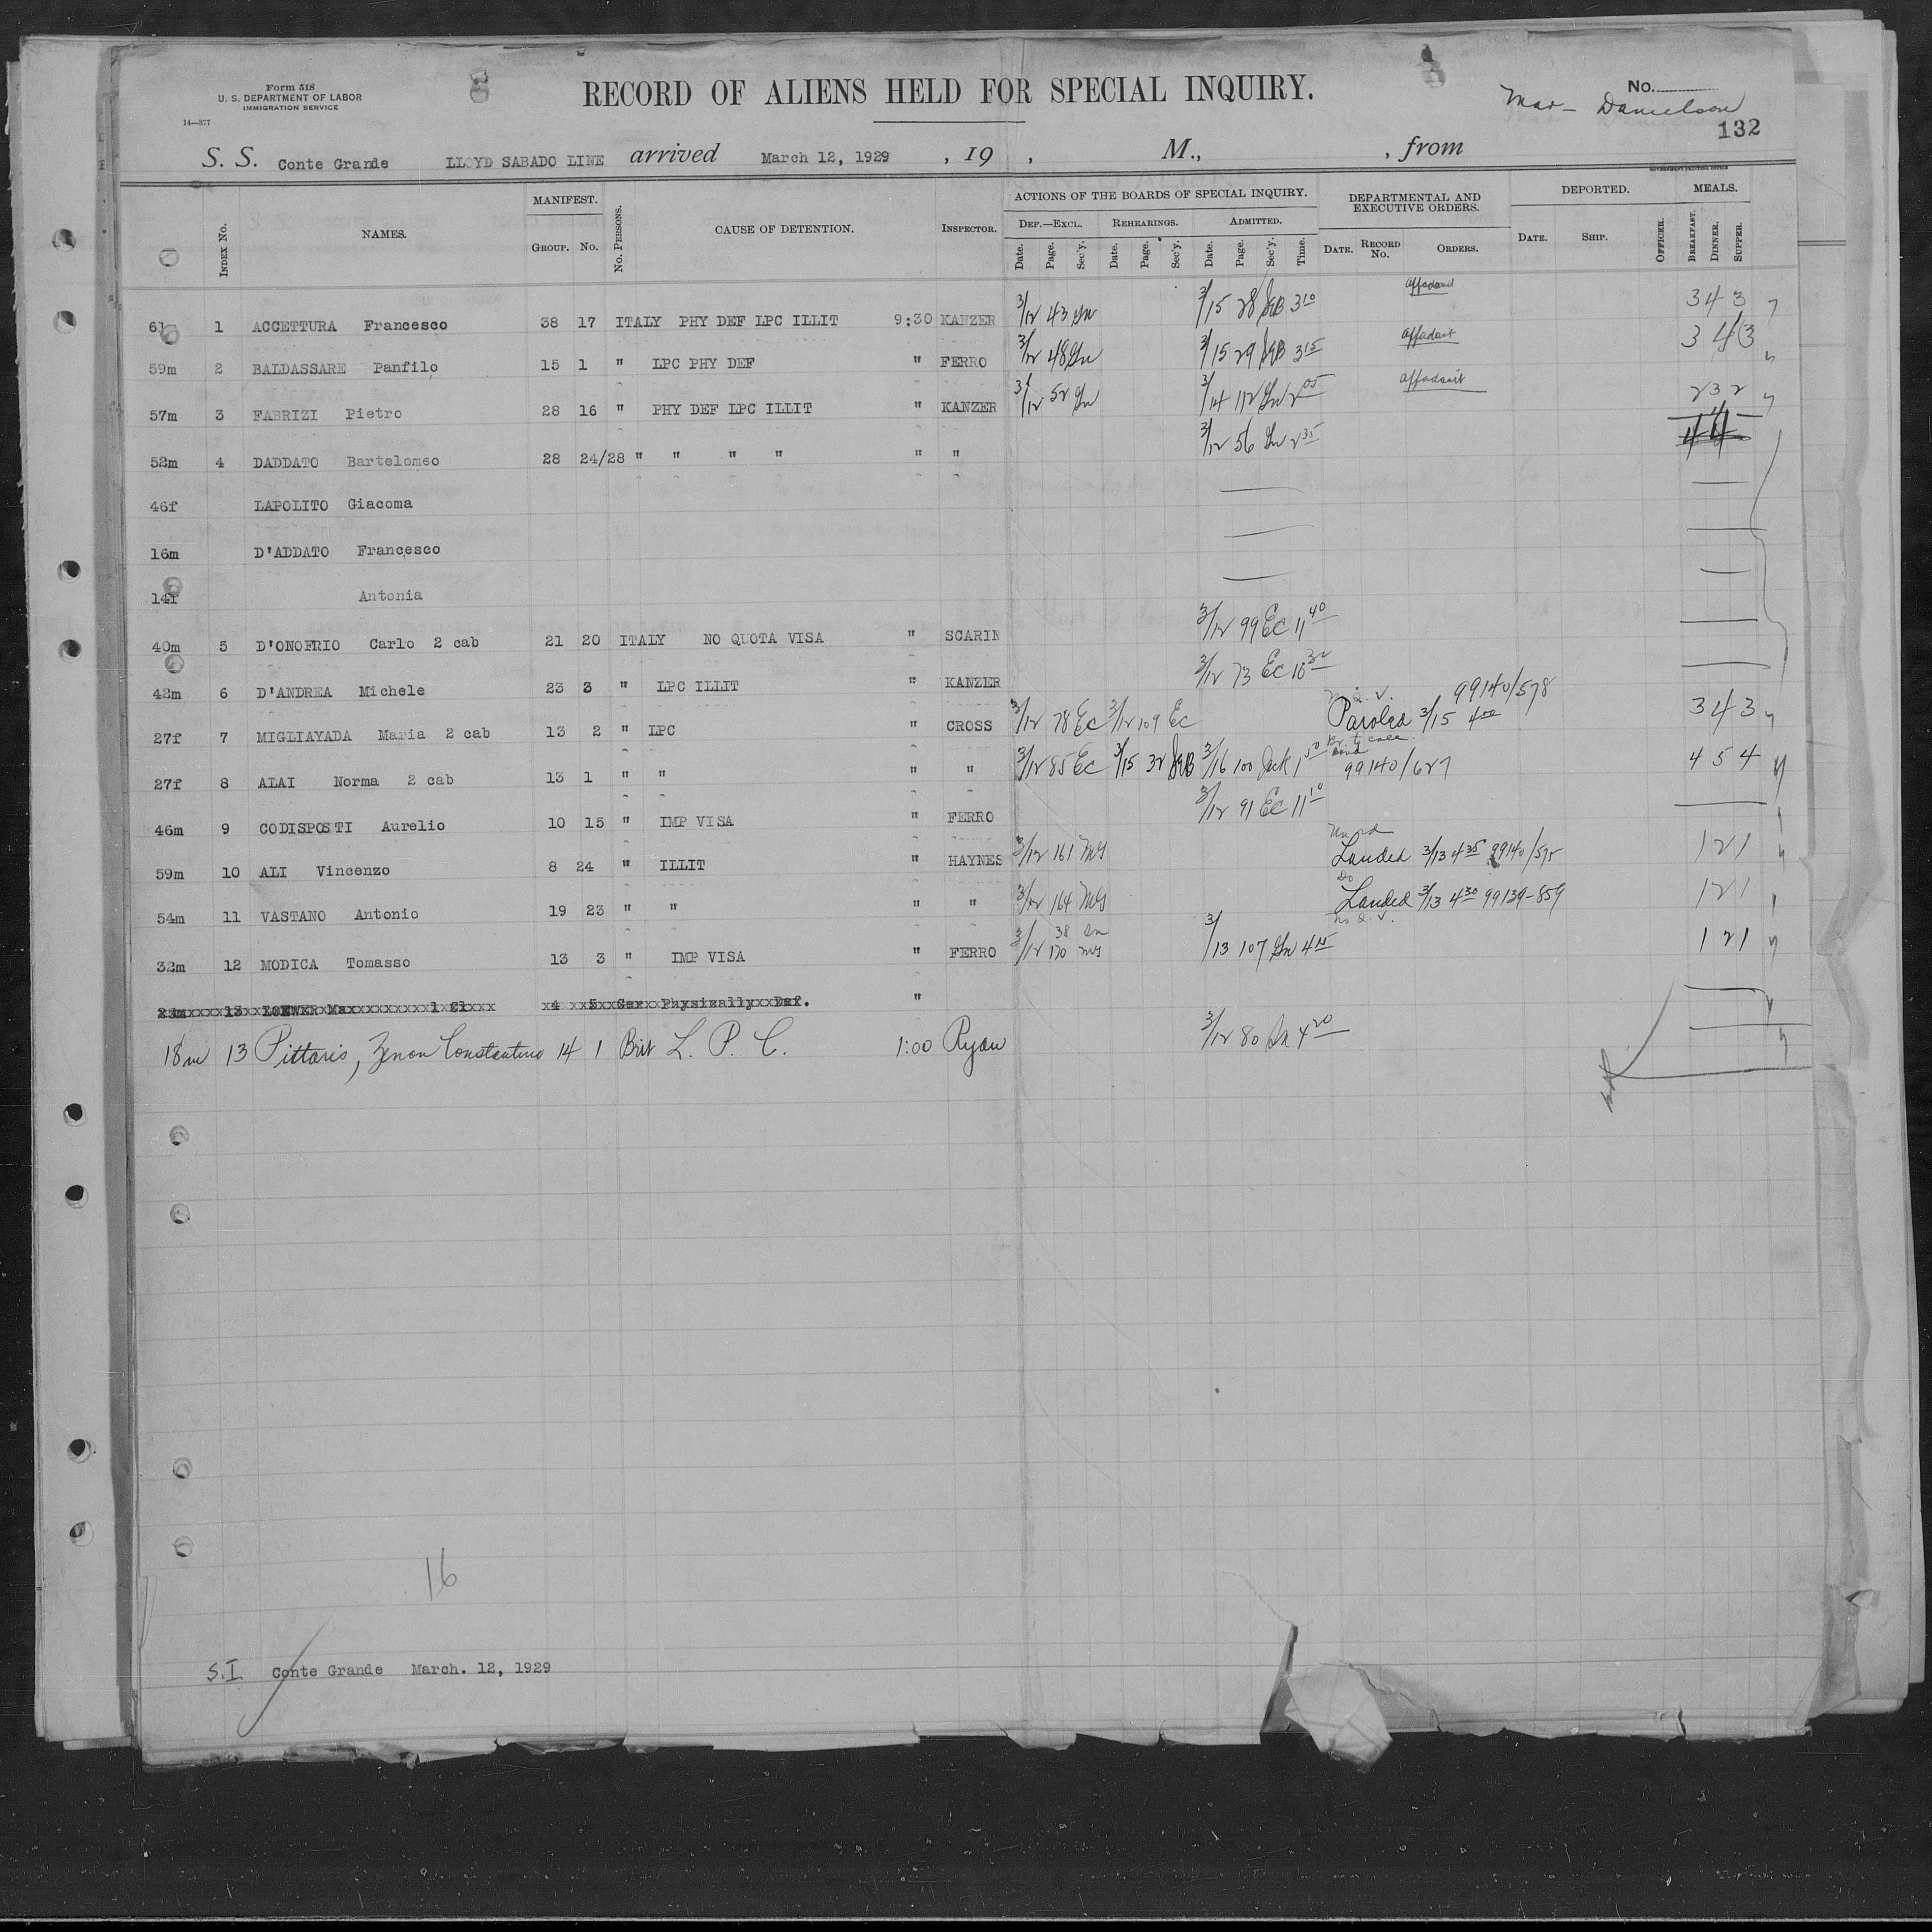 Form 518
U. S. DEPARTMENT OF LABOR
IMMIGRATION SERVICE
14—377
RECORD OF ALIENS HELD FOR SPECIAL INQUIRY.
No.
Danielson
132
S. S. Conte Grande LLOYD SABADO LINE arrived March 12, 1929 , 19 , M., , from
GOVERNMENT PRINTING OFFICE
INDEX No. NAMES. MANIFEST. GROUP. No. No. PERSONS. CAUSE OF DETENTION. INSPECTOR. ACTIONS OF THE BOARDS OF SPECIAL INQUIRY. DEPARTMENTAL AND EXECUTIVE ORDERS. DEPORTED. MEALS.
DEF.—EXCL. REHEARINGS. ADMITTED.
Date. Page. Sec'y. Date. Page. Sec'y. Date. Page. Sec'y. Time. DATE. RECORD No. ORDERS. DATE. SHIP. OFFICER. BREAKFAST. DINNER. SUPPER.
61 1 ACCETTURA Francesco 38 17 ITALY PHY DEF LPC ILLIT 9:30 KANZER 3/12 43 3/15 28 3 10 affadavit 3 4 3
59m 2 BALDASSARE Panfilo 15 1 " LPC PHY DEF " FERRO 3/12 48 3/15 29 3 15 affadavit 3 4 3
57m 3 FABRIZI Pietro 28 16 " PHY DEF LPC ILLIT " KANZER 3/12 52 3/14 112 2 05 affadavit 2 3 2
52m 4 DADDATO Bartelomeo 28 24/28 " " " " " " 3/12 56 2 35
46f LAPOLITO Giacoma
16m D'ADDATO Francesco
14f Antonia
40m 5 D'ONOFRIO Carlo 2 cab 21 20 ITALY NO QUOTA VISA " SCARIN 3/12 99 Ec 11 40
42m 6 D'ANDREA Michele 23 3 " LPC ILLIT " KANZER 3/12 73 Ec 10 30
27f 7 MIGLIAYADA Maria 2 cab 13 2 " LPC " CROSS 3/12 78 Ec 3/12 109 Ec 99140/578 Paroled 3/15 4 00 3 4 3
27f 8 ALAI Norma 2 cab 13 1 " " " " 3/12 85 Ec 3/15 32 3/16 100 1 50 99140/627 4 5 4
46m 9 CODISPOSTI Aurelio 10 15 " IMP VISA " FERRO 3/12 91 Ec 11 10
59m 10 ALI Vincenzo 8 24 " ILLIT " HAYNES 3/12 161 Landed 3/13 4 35 99140/575 1 2 1
54m 11 VASTANO Antonio 19 23 " " " " 3/12 164 Do Landed 3/13 4 30 99139-859 1 2 1
32m 12 MODICA Tomasso 13 3 " IMP VISA " FERRO 3/12 38 170 No Q. V. 3/13 107 4 15 1 2 1
23m 13 LOEWER Max 1 cl 4 5 Ger Physically Def. "
18m 13 Pittaris, Zenon Constantino 14 1 Brit L. P. C. 1:00 Ryan 3/12 80 4 20
16
S.I. Conte Grande March. 12, 1929